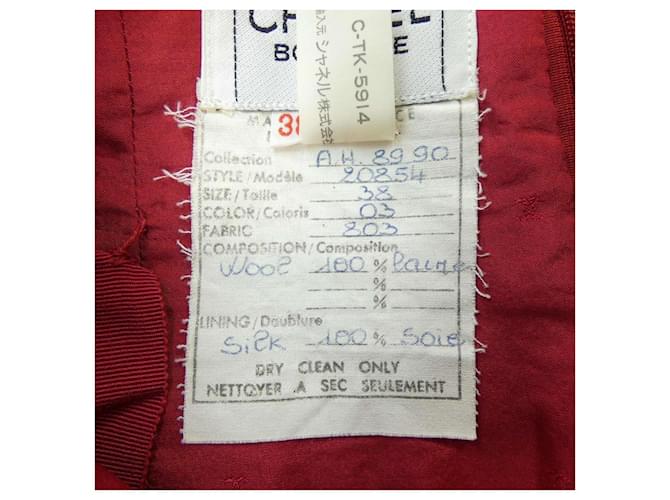 CH EL
BO E
C-TK-5914
シャネル株式会
MA CE
38
Collection A.H. 89 90
STYLE/Modèle 20854
SIZE/Taille 38
COLOR/Coloris 03
FABRIC 803
COMPOSITION/Composition
Wool 100 % Laine
%
%
LINING/Doublure
Silk 100 % Soie
DRY CLEAN ONLY
NETTOYER A SEC SEULEMENT